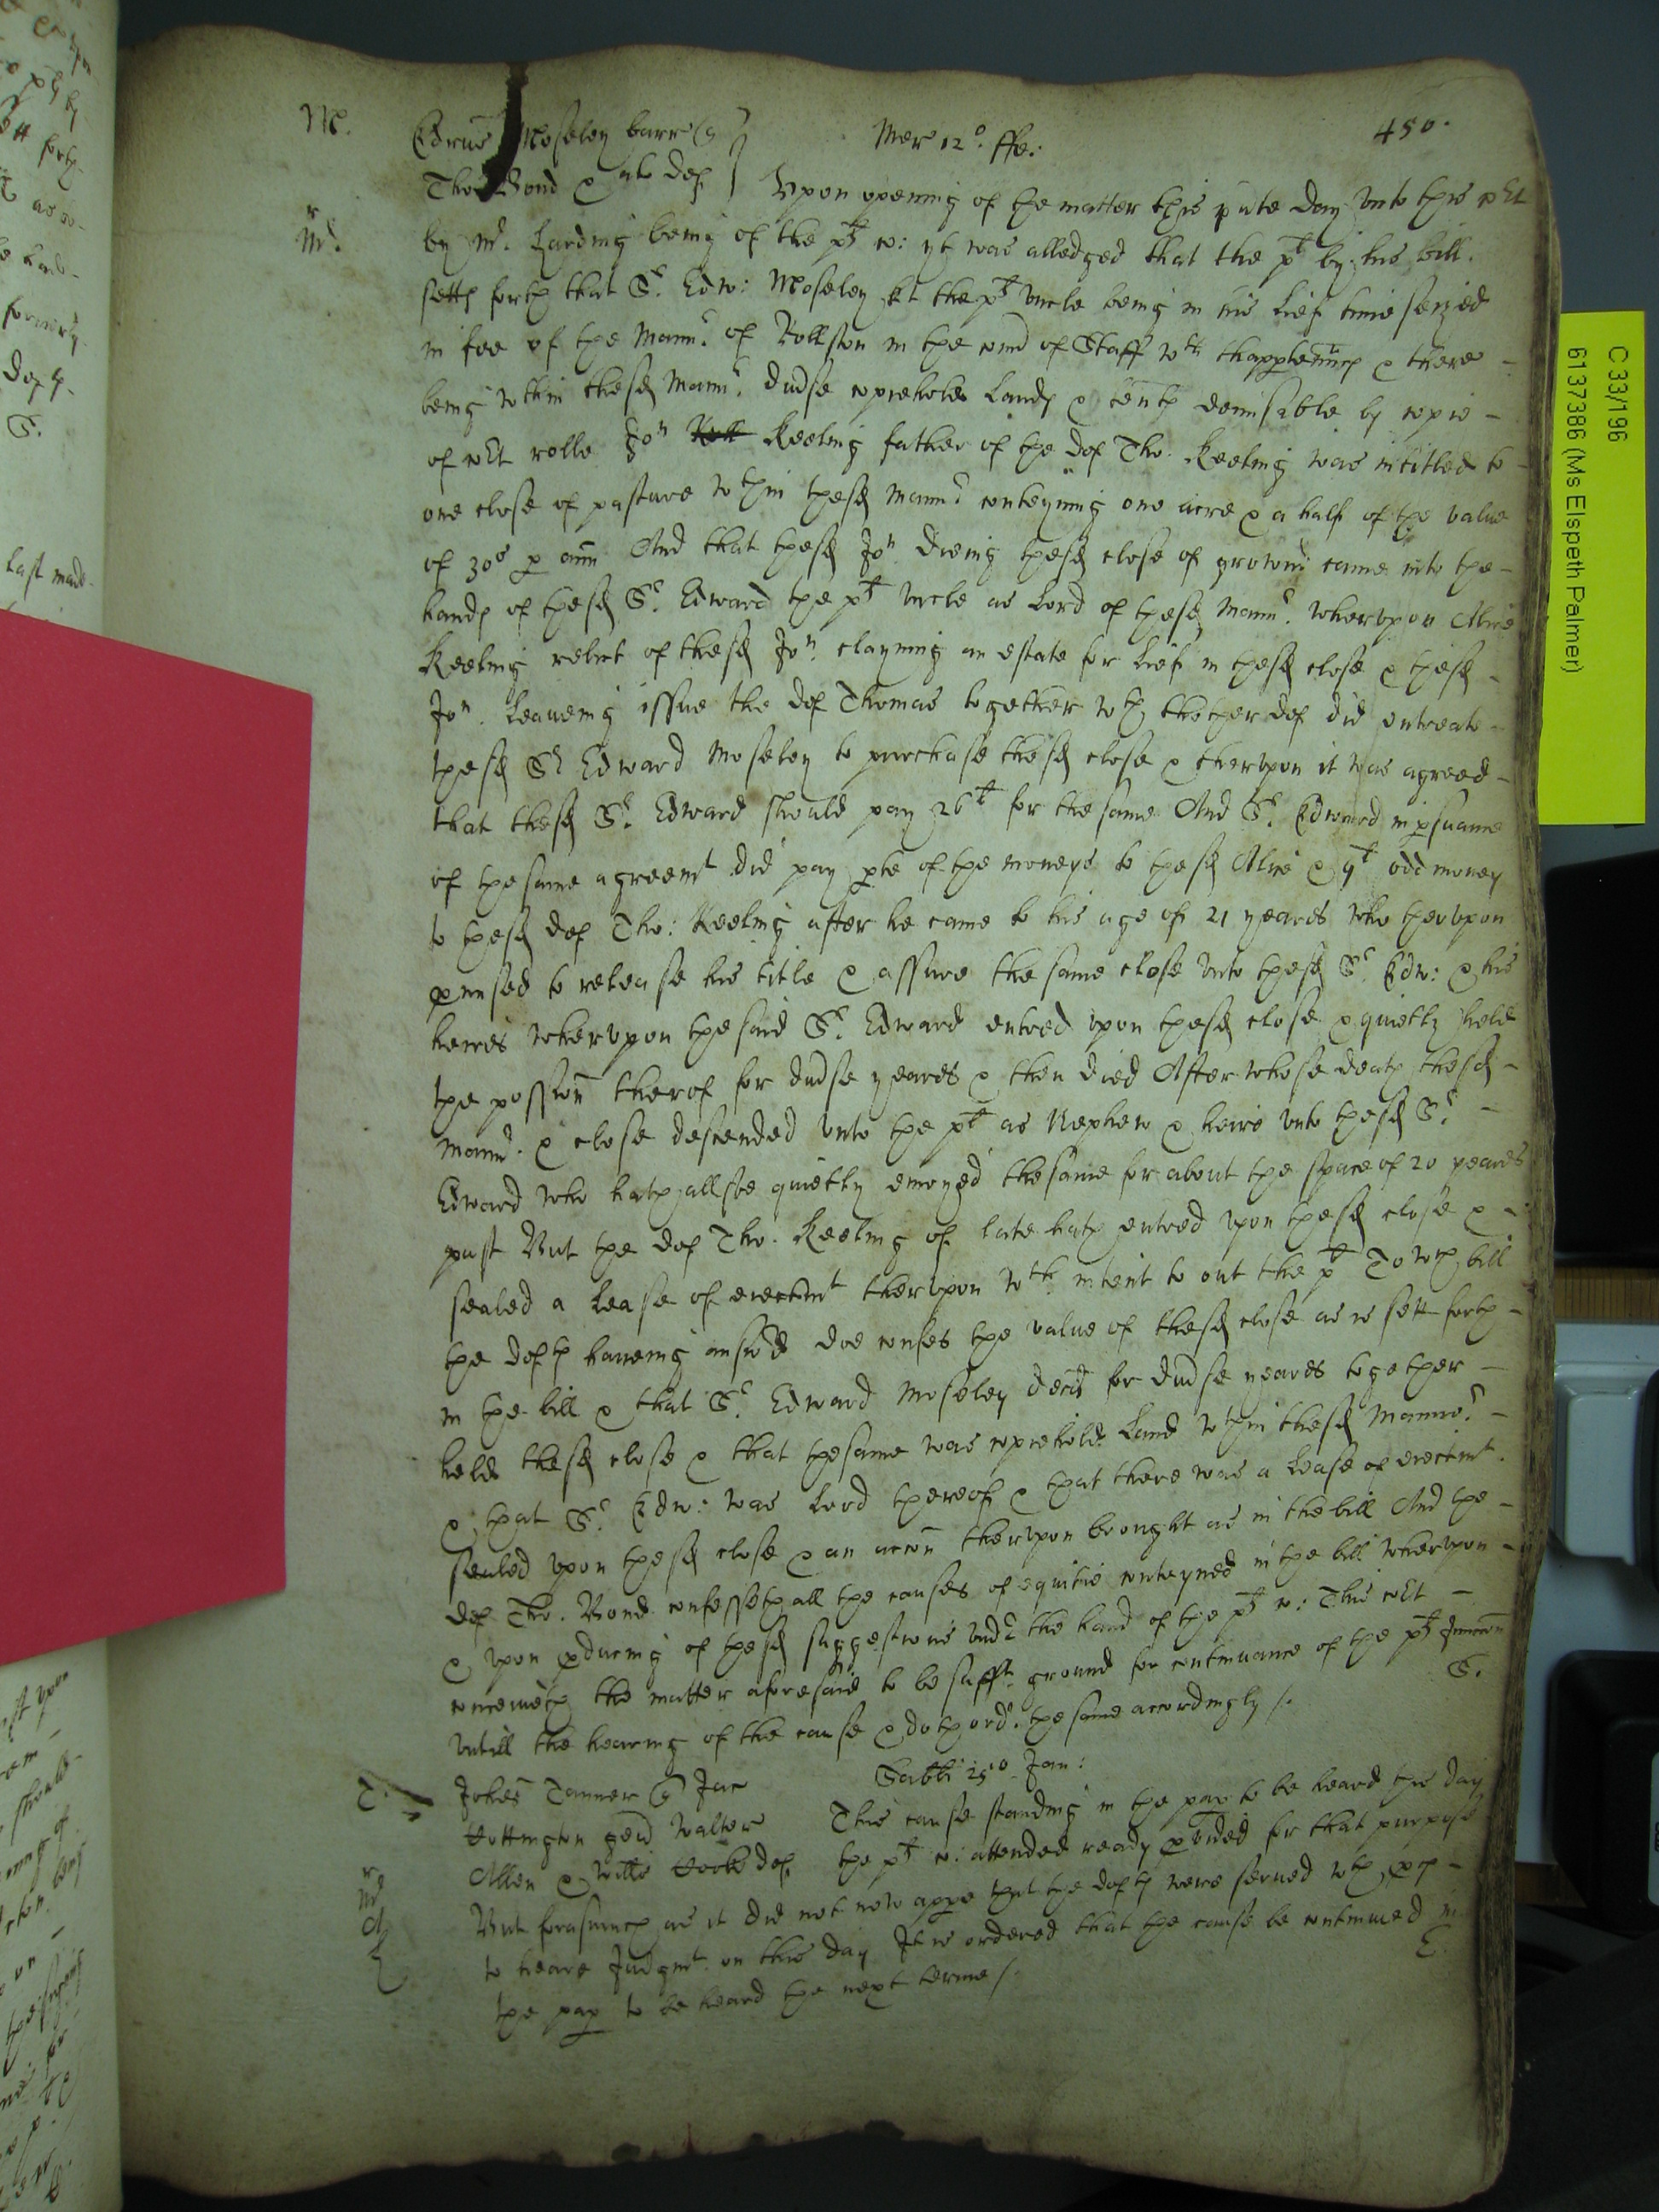 M. Edrus Moseley barr q
Mer 12o. ffe:
450.
Tho Bond & al def
Vpon opening of the matter this pnte day vnto this cort
Mr. by Mr. Harding being of the plt c: yt was alledged that the plt by his bill.
setts forth that Sr. Edw: Moseley kt the plts vncle being in his lief time seized
in fee of the Mannr. of Rollston in the com of Staff wth thapptenncs & there -
being wthin thesd Mannr. diuse copiehold Lands & tents demisable by copie -
of cort rolle Jon Keeling father of the def Tho. Keeling was intitled to -
one close of pasture wthin thesd Mannr conteyning one acre & a half of the value
of 30s p ann And that thesd Jon dieing thesd close of ground came into the -
hands of thesd Sr. Edward the plts vncle as Lord of thesd Mannr. wherevpon Alice
Keeling relict of thesd Jon. clayming an estate for lief in thesd close & thesd -
Jon. Leaueing issue the def Thomas together wth thother def did entreate -
thesd Sr Edward Moseley to purchase thesd close & thervpon it was agreed -
that thesd Sr. Edward should pay 26l for the same And Sr. Edward in psuance
of the same agreemt did pay pte of the moneys to thesd Alice & 9l odd money
to thesd def Tho: Keeling after he came to his age of 21 yeares who thervpon
pmised to release his title & assure the same close vnto thesd Sr. Edw: & his
heires whervpon the said Sr. Edward entred vpon thesd close & quietly held
the possion therof for diuse yeares & then died After whose death thesd -
Mannr. & close descended vnto the plt as Nephew & heire vnto thesd Sr. -
Edward who hath allsoe quietly enioyed the same for about the space of 20 yeares
past But the def Tho. Keeling of late hath entred vpon thesd close & -
sealed a Lease of eiectmt thervpon wth intent to out the plt To wch bill
the defts haueing answd doe confes the value of thesd close as is sett forth -
in the bill & that Sr. Edward Moseley decd for diuse yeares together -
held thesd close & that the same was copiehold Land wthin thesd Mannor. -
& that Sr. Edw: was Lord thereof & that there was a Lease of eiectmt.
sealed vpon thesd close & an accon thervpon brought as in the bill And the -
def Tho. Bond confesseth all the causes of equitie conteyned in the bill whervpon -
& vpon pduceing of thesd suggestions vndr the hand of the plts c: This cort -
conceiueth the matter aforesaid to be sufft. ground for continuance of the plts Jniunccon
vntill the hearing of the cause & doth ordr. the same accordingly /.
S.
Sabbi 25o Jan:
T. Johes Tanner q Jac
This cause standing in the pap to be heard this day
Hottington gen Walter
the plts c: attended ready pvided for that purpose
Allen & Willm Cooke def
Mr But forasmuch as it did not now appe that the defts were serued wth pces -
to heare Judgmt. on this day It is ordered that the cause be continued in
the pap to be heard the next terme /.
C 33/196
6137386 (Ms Elspeth Palmer)